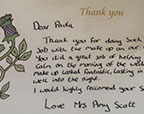 Thank you
Dear Paula
Thank you for doing such
Job with the make up on our
You did a great job of helping
Calm on the morning of the wedd
make up looked fantastic, lasting
well into the night.
I would highly recomend your s
Love Mrs Amy Scott